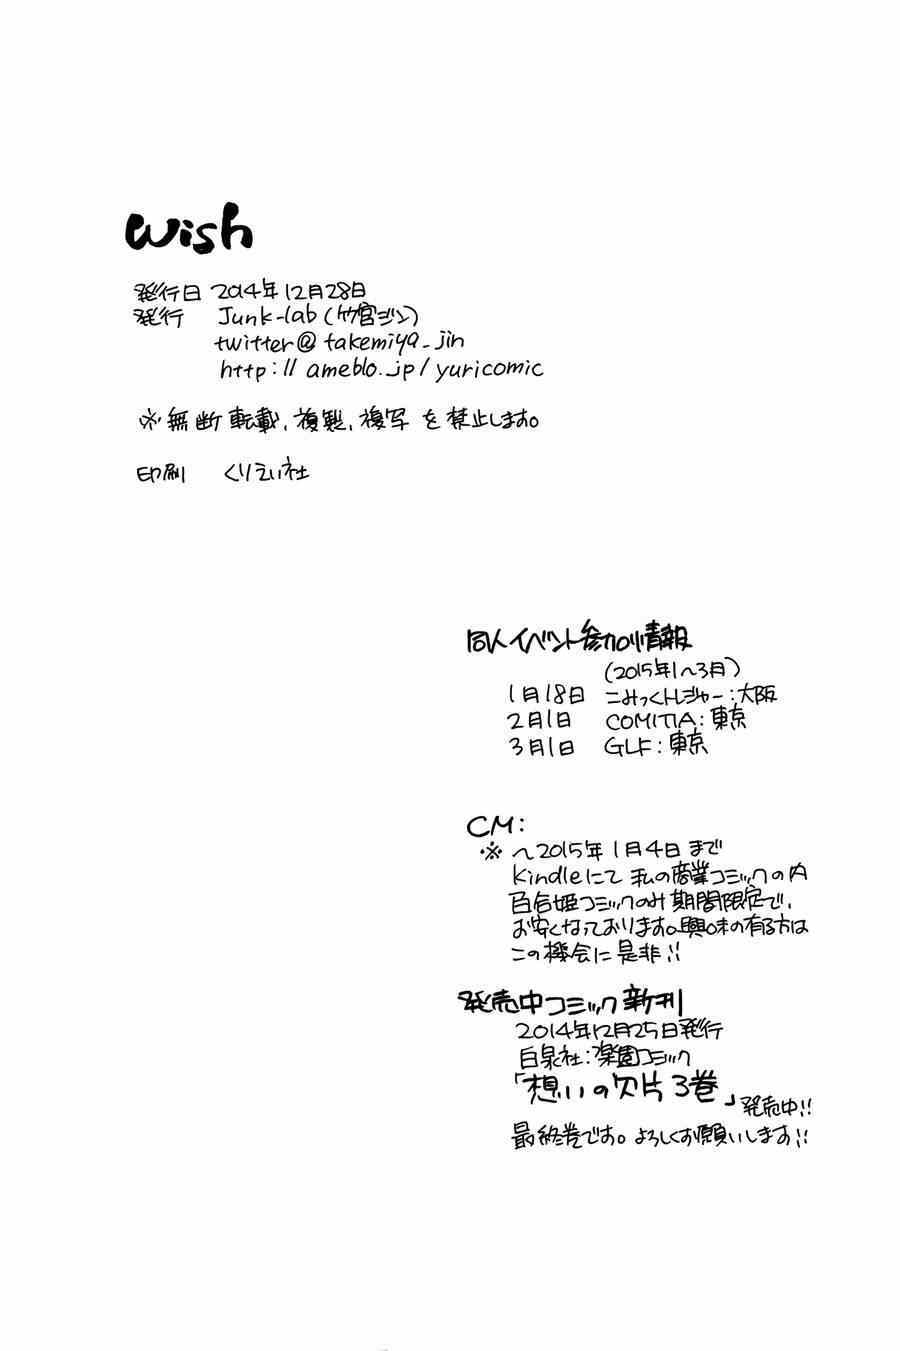 wish
発行日 2014年12月28日
発行 Junk-lab(竹宮ジン)
twitter@takemiya_jin
http://ameblo.jp/yuricomic
※無断転載、複製、複写を禁止します。
印刷 くりえい社
同人イベント参加情報
(2015年1~3月)
1月18日 こみっくトレジャー:大阪
2月1日 COMITIA:東京
3月1日 GLF:東京
CM:
※ ~2015年1月4日まで
Kindleにて私の商業コミックの内
百合姫コミックのみ期間限定で、
お安くなっております。興味の有る方は
この機会に是非!!
発売中コミック新刊
2014年12月25日発行
白泉社:楽園コミック
「想いの欠片3巻」発売中!!
最終巻です。よろしくお願いします!!